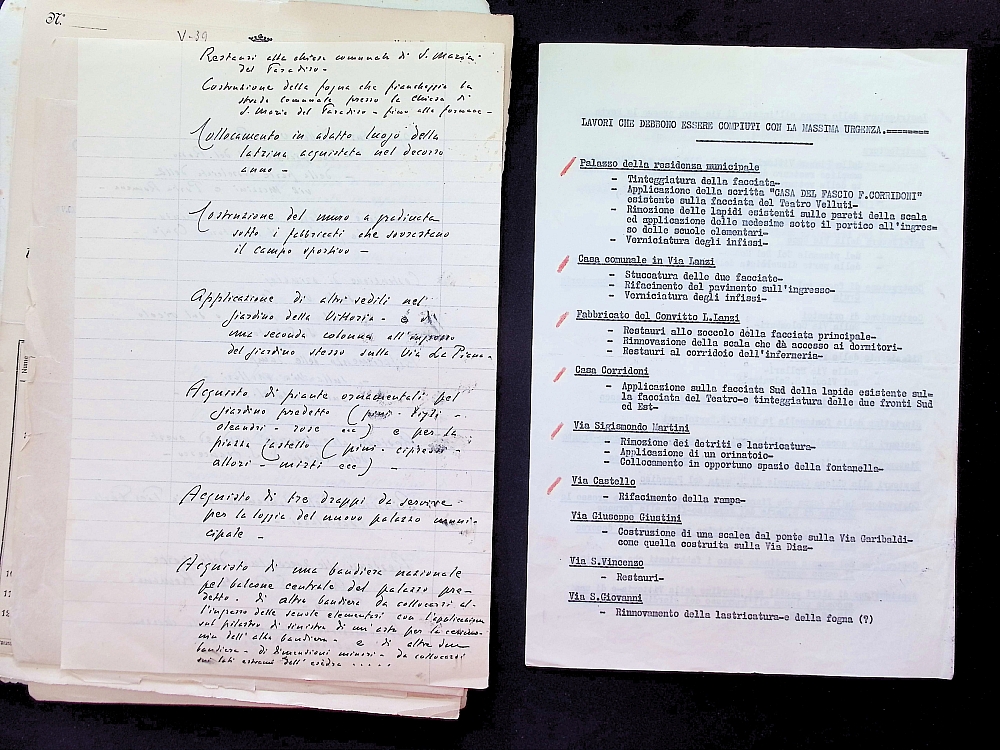 N.
V-39
Restauri alla chiesa comunale di S. Maria
del Paradiso -
Costruzione della fogna che fiancheggia la
strada comunale presso la Chiesa di
S. Maria del Paradiso - fino alla fornace -
Collocamento in adatto luogo della
latrina acquistata nel decorso
anno -
Costruzione del muro a gradinata
sotto i fabbricati che sovrastano
il campo sportivo -
Applicazione di altri sedili nel
giardino della Vittoria - e di
una seconda colonna all'ingresso
del giardino stesso sulla Via La Piana -
Acquisto di piante ornamentali pel
giardino predetto ( pini - tigli -
oleandri - rose ecc ) e per la
piazza Castello ( pini - cipressi -
allori - mirti ecc ) -
Acquisto di tre drappi da servire
per la loggia del nuovo palazzo muni-
cipale -
Acquisto di una bandiera nazionale
pel balcone centrale del palazzo pre-
detto - di altra bandiera da collocarsi al-
l'ingresso delle scuole elementari con l'applicazione
sul pilastro di sinistra di un'asta per la cerimo-
nia dell'alza bandiera - e di altre due
bandiere - di dimensioni minori - da collocarsi
sui lati estremi dell'esedra .....
Nume
LAVORI CHE DEBBONO ESSERE COMPIUTI CON LA MASSIMA URGENZA.========
Palazzo della residenza municipale
- Tinteggiatura della facciata-
- Applicazione della scritta "CASA DEL FASCIO F.CORRIDONI"
esistente sulla facciata del Teatro Velluti-
- Rimozione delle lapidi esistenti sulle pareti della scala
ed applicazione delle medesime sotto il portico all'ingres=
so delle scuole elementari-
- Verniciatura degli infissi-
Casa comunale in Via Lanzi
- Stuccatura delle due facciate-
- Rifacimento del pavimento sull'ingresso-
- Verniciatura degli infissi-
Fabbricato del Convitto L.Lanzi
- Restauri allo zoccolo della facciata principale-
- Rinnovazione della scala che dà accesso ai dormitori-
- Restauri al corridoio dell'infermeria-
Casa Corridoni
- Applicazione sulla facciata Sud della lapide esistente sul=
la facciata del Teatro-e tinteggiatura delle due fronti Sud
ed Est-
Via Sigismondo Martini
- Rimozione dei detriti e lastricatura-
- Applicazione di un orinatoio-
- Collocamento in opportuno spazio della fontanella-
Via Castello
- Rifacimento della rampa-
Via Giuseppe Giustini
- Costruzione di una scalea dal ponte sulla Via Garibaldi-
come quella costruita sulla Via Diaz-
Via S.Vincenzo
- Restauri-
Via S.Giovanni
- Rinnovamento della lastricatura-e della fogna (?)